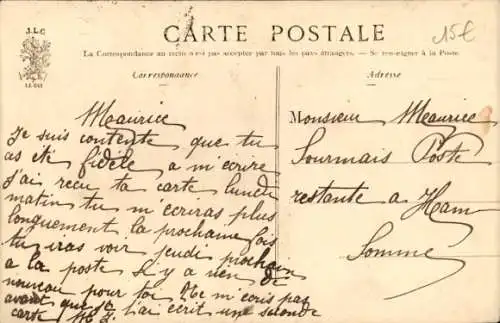 15€
J.L.C
CARTE POSTALE
La Correspondance au recto n'est pas acceptée par tous les pays étrangers. — Se renseigner à la Poste
Correspondance
Adresse
Maurice
Je suis contente que tu
as été fidèle a m'écrire
J'ai reçu ta carte lundi
matin tu m'écriras plus
longuement la prochaine fois
tu iras voir jeudi prochain
a la poste s'il y a rien de
nouveau pour toi Ne m'écris pas
avant que je t'ai écrit une seconde
carte
Monsieur Maurice
Sourmais Poste
restante a Ham
Somme